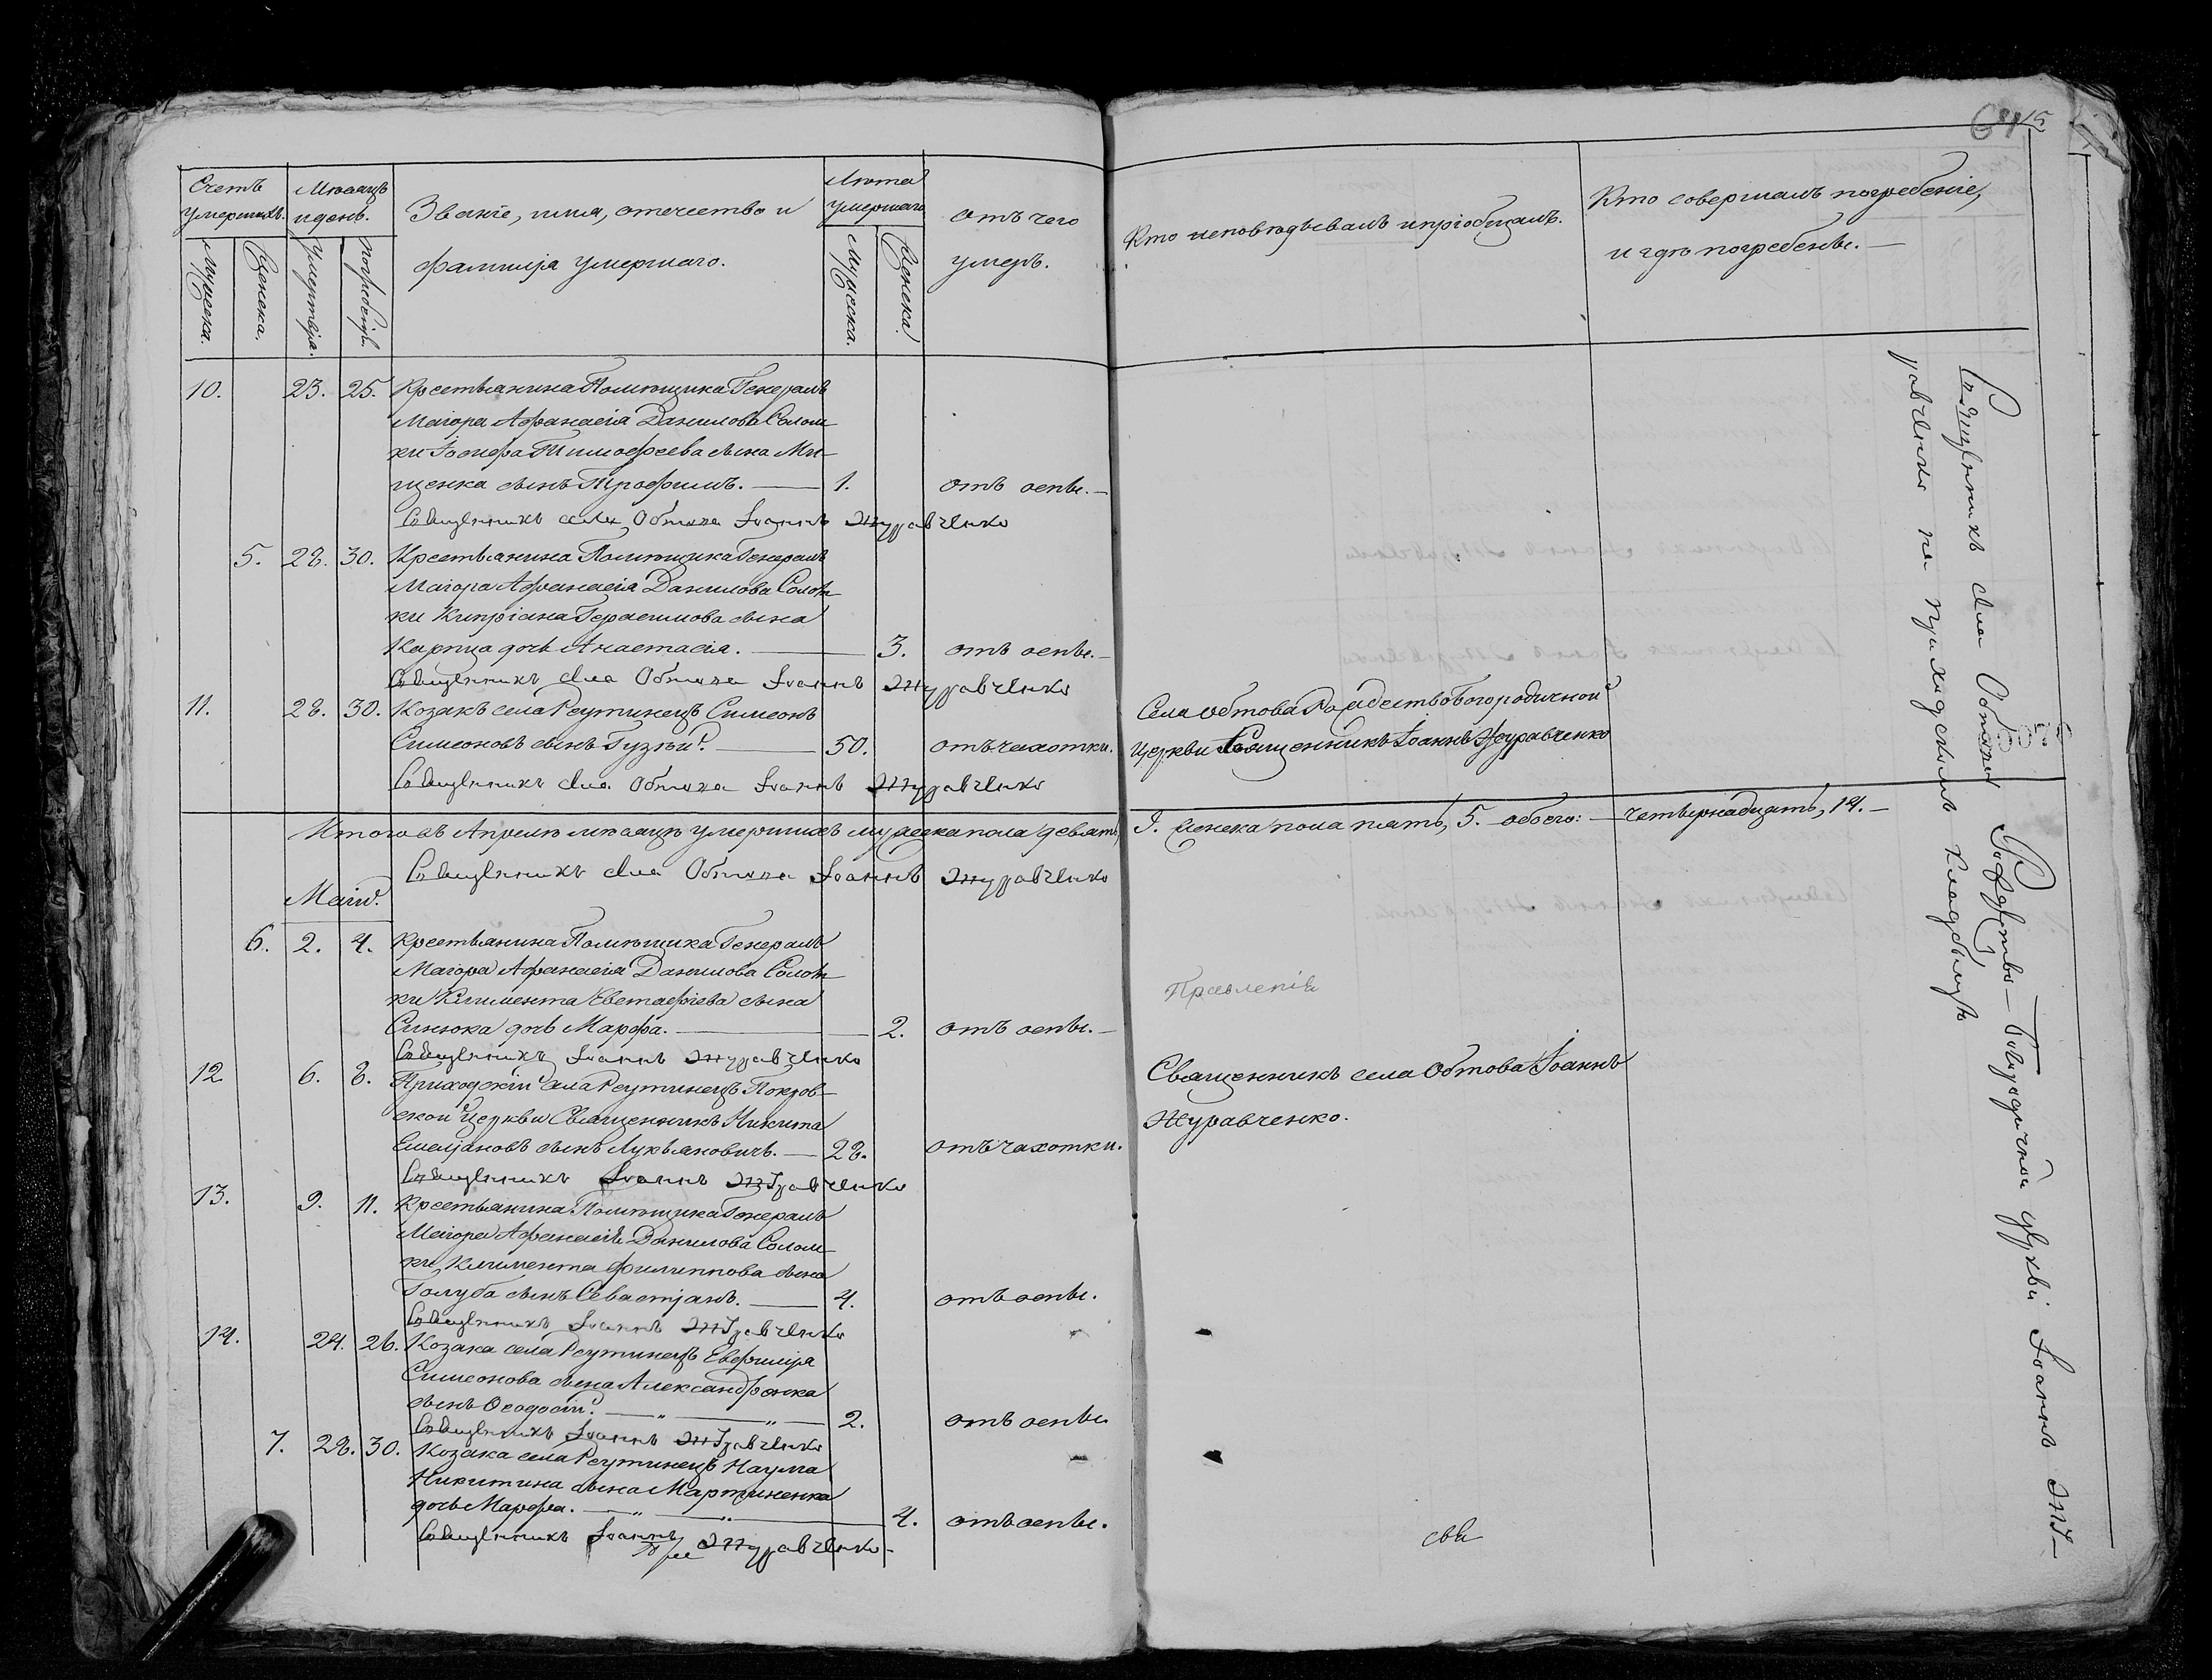 Счетъ умершихъ.
Мужеска.
Женска.
Мѣсяцъ и день.
Умертвія.
Погребенія.
Званіе, имя, отечество и
фамилія умершаго.
Лѣта умершаго
Мужеска.
Женска.
отъ чего
умеръ.
Кто исповѣдывалъ и пріобщалъ.
Кто совершалъ погребеніе,
и гдѣ погребены.—
10. 23. 25. Крестьянина Помѣщика Генералъ
Маіора Афанасія Данилова Солом-
ки Іосифа Тимофеева сына Ми-
щенка сынъ Трофимъ. — 1. отъ оспы.—
Священникъ села Обтова Іоаннъ Журавченко
5. 28. 30. Крестьянина Помѣщика Генералъ
Маіора Афанасія Данилова Солом-
ки Кипріана Герасимова сына
Карпца дочь Анастасія. — 3. отъ оспы.—
Священникъ села Обтова Іоаннъ Журавченко
11. 28. 30. Козакъ села Реутинецъ Симеонъ
Симеоновъ сынъ Гузѣй. — 50. отъ чахотки.
Села Обтова Рождество Богородичной
Церкви Священникъ Іоаннъ Журавченко
Священникъ села Обтова Іоаннъ Журавченко
Итого въ Апрелѣ мѣсяцѣ умершихъ мужеска пола девять, 9. женска пола пять, 5. обоего: — четырнадцать, 14.—
Священникъ села Обтова Іоаннъ Журавченко
Маій.
6. 2. 4. Крестьянина Помѣщика Генералъ
Маіора Афанасія Данилова Солом-
ки Климента Евстафіева сына
Синюка дочь Марфа. — 2. отъ оспы.—
Правленія
Священникъ Іоаннъ Журавченко
12. 6. 8. Приходскій села Реутинецъ Покров-
ской Церкви Священникъ Никита
Емельяновъ сынъ Лукьяновичъ. — 28. отъ чахотки.
Священникъ села Обтова Іоаннъ
Журавченко.
Священникъ Іоаннъ Журавченко
13. 9. 11. Крестьянина Помѣщика Генералъ
Маіора Афанасія Данилова Солом-
ки Климента Филиппова сына
Голуба сынъ Севастіанъ. — 4. отъ оспы.
Священникъ Іоаннъ Журавченко
14. 24. 26. Козака села Реутинецъ Евфимія
Симеонова сына Александренка
сынъ Феодосій. — „ — „ — 2. отъ оспы
Священникъ Іоаннъ Журавченко
7. 28. 30. Козака села Реутинецъ Наума
Никитина сына Мартиненка
дочь Марфа. — „ — „ — 4. отъ оспы.
Священникъ Іоаннъ Журавченко
свя
Священникъ села Обтова Рождество-Богородичной церкви Іоаннъ Жу-
равченко на приходскомъ кладбищѣ